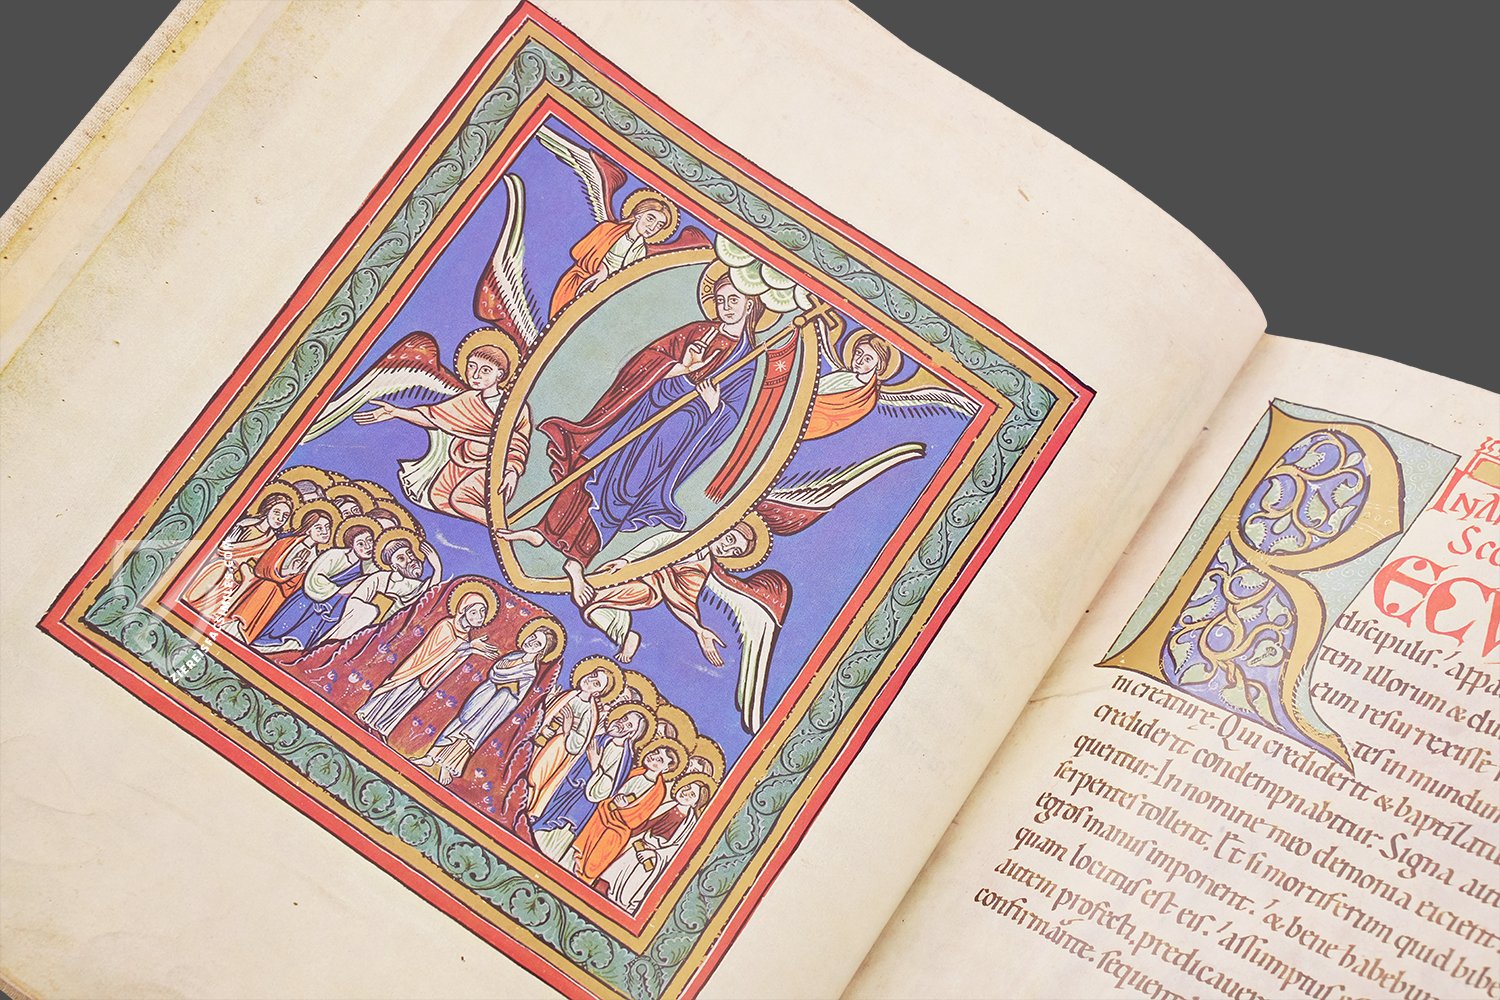 INA
Sco
RECV
discipulis.' appa
tem illorum & du
eum resurrexisse
tes in mundum
ni creature. Qui crediderit & baptizatu
crediderit condempnabitur. Signa aute
quentur. In nomine meo demonia eicient.
serpentes tollent. Et si mortiferum quid bibe
egros manus imponent.' & bene habebun
quam locutus est eis.' assumptus
autem profecti, predicauer
confirmante. sequent